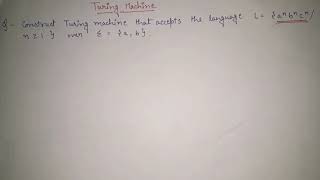 Turing Machine
Q - Construct Turing machine that accepts the language L = { aⁿbⁿcⁿ /
n ≥ 1 } over Σ = {a, b}.